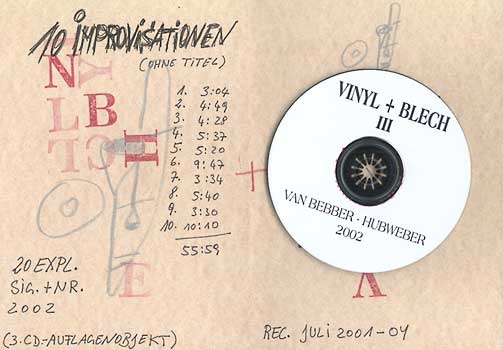 10 IMPROVISATIONEN
(OHNE TITEL)
1. 3:04
2. 4:49
3. 4:28
4. 5:37
5. 5:20
6. 9:47
7. 3:34
8. 5:40
9. 3:30
10. 10:10
55:59
20 EXPL.
SIG. + NR.
2002
(3.CD.-AUFLAGENOBJEKT)
VINYL + BLECH
III
VAN BEBBER · HUBWEBER
2002
REC. JULI 2001-04